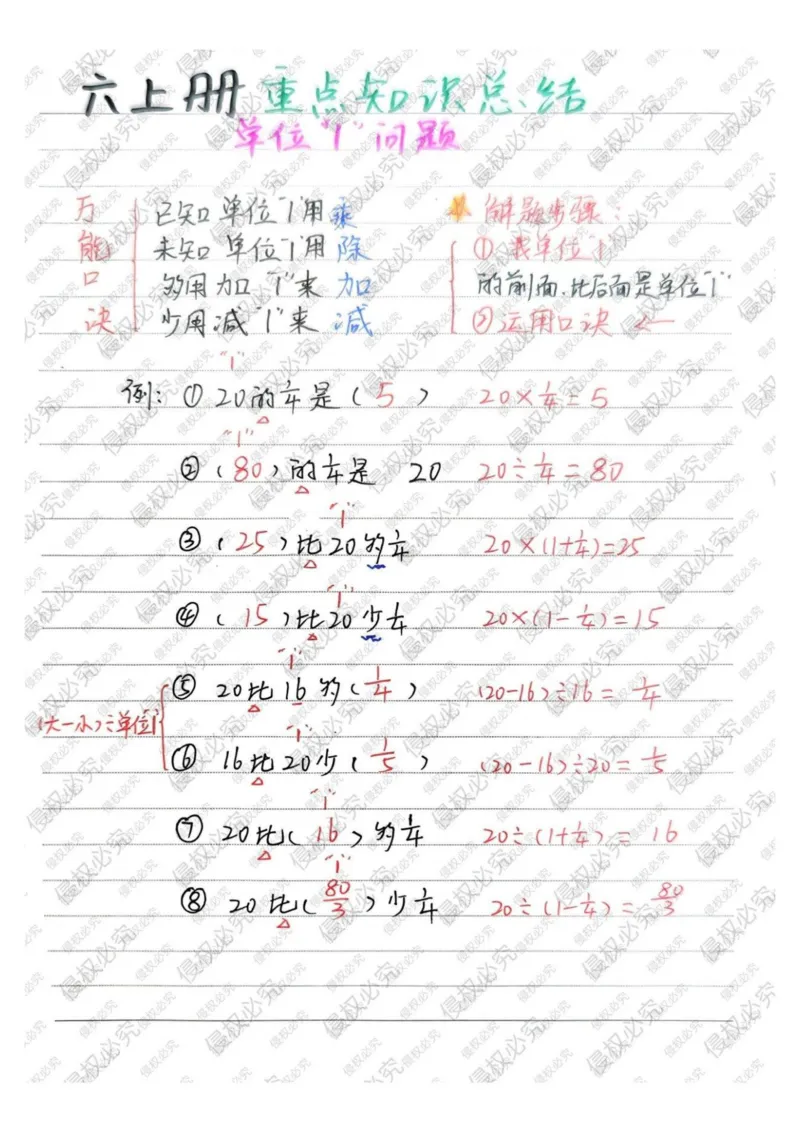 六上册 重点知识总结
单位"1"问题
万能口诀
已知单位"1"用乘
未知单位"1"用除
多用加 "1"来加
少用减"1"来减
解题步骤:
①找单位"1"
的前面、比后面是单位"1"
②运用口诀 ←
"1"
例: ① 20的1/4是( 5 ) 20×1/4=5
"1"
② ( 80 )的1/4是 20 20÷1/4=80
"1"
③ ( 25 )比20多1/4 20×(1+1/4)=25
"1"
④ ( 15 )比20少1/4 20×(1-1/4)=15
"1"
⑤ 20比16多( 1/4 ) (20-16)÷16= 1/4
(大-小)÷单位"1"
"1"
⑥ 16比20少( 1/5 ) (20-16)÷20= 1/5
"1"
⑦ 20比( 16 )多1/4 20÷(1+1/4)= 16
"1"
⑧ 20比( 80/3 )少1/4 20÷(1-1/4)= 80/3
侵权必究